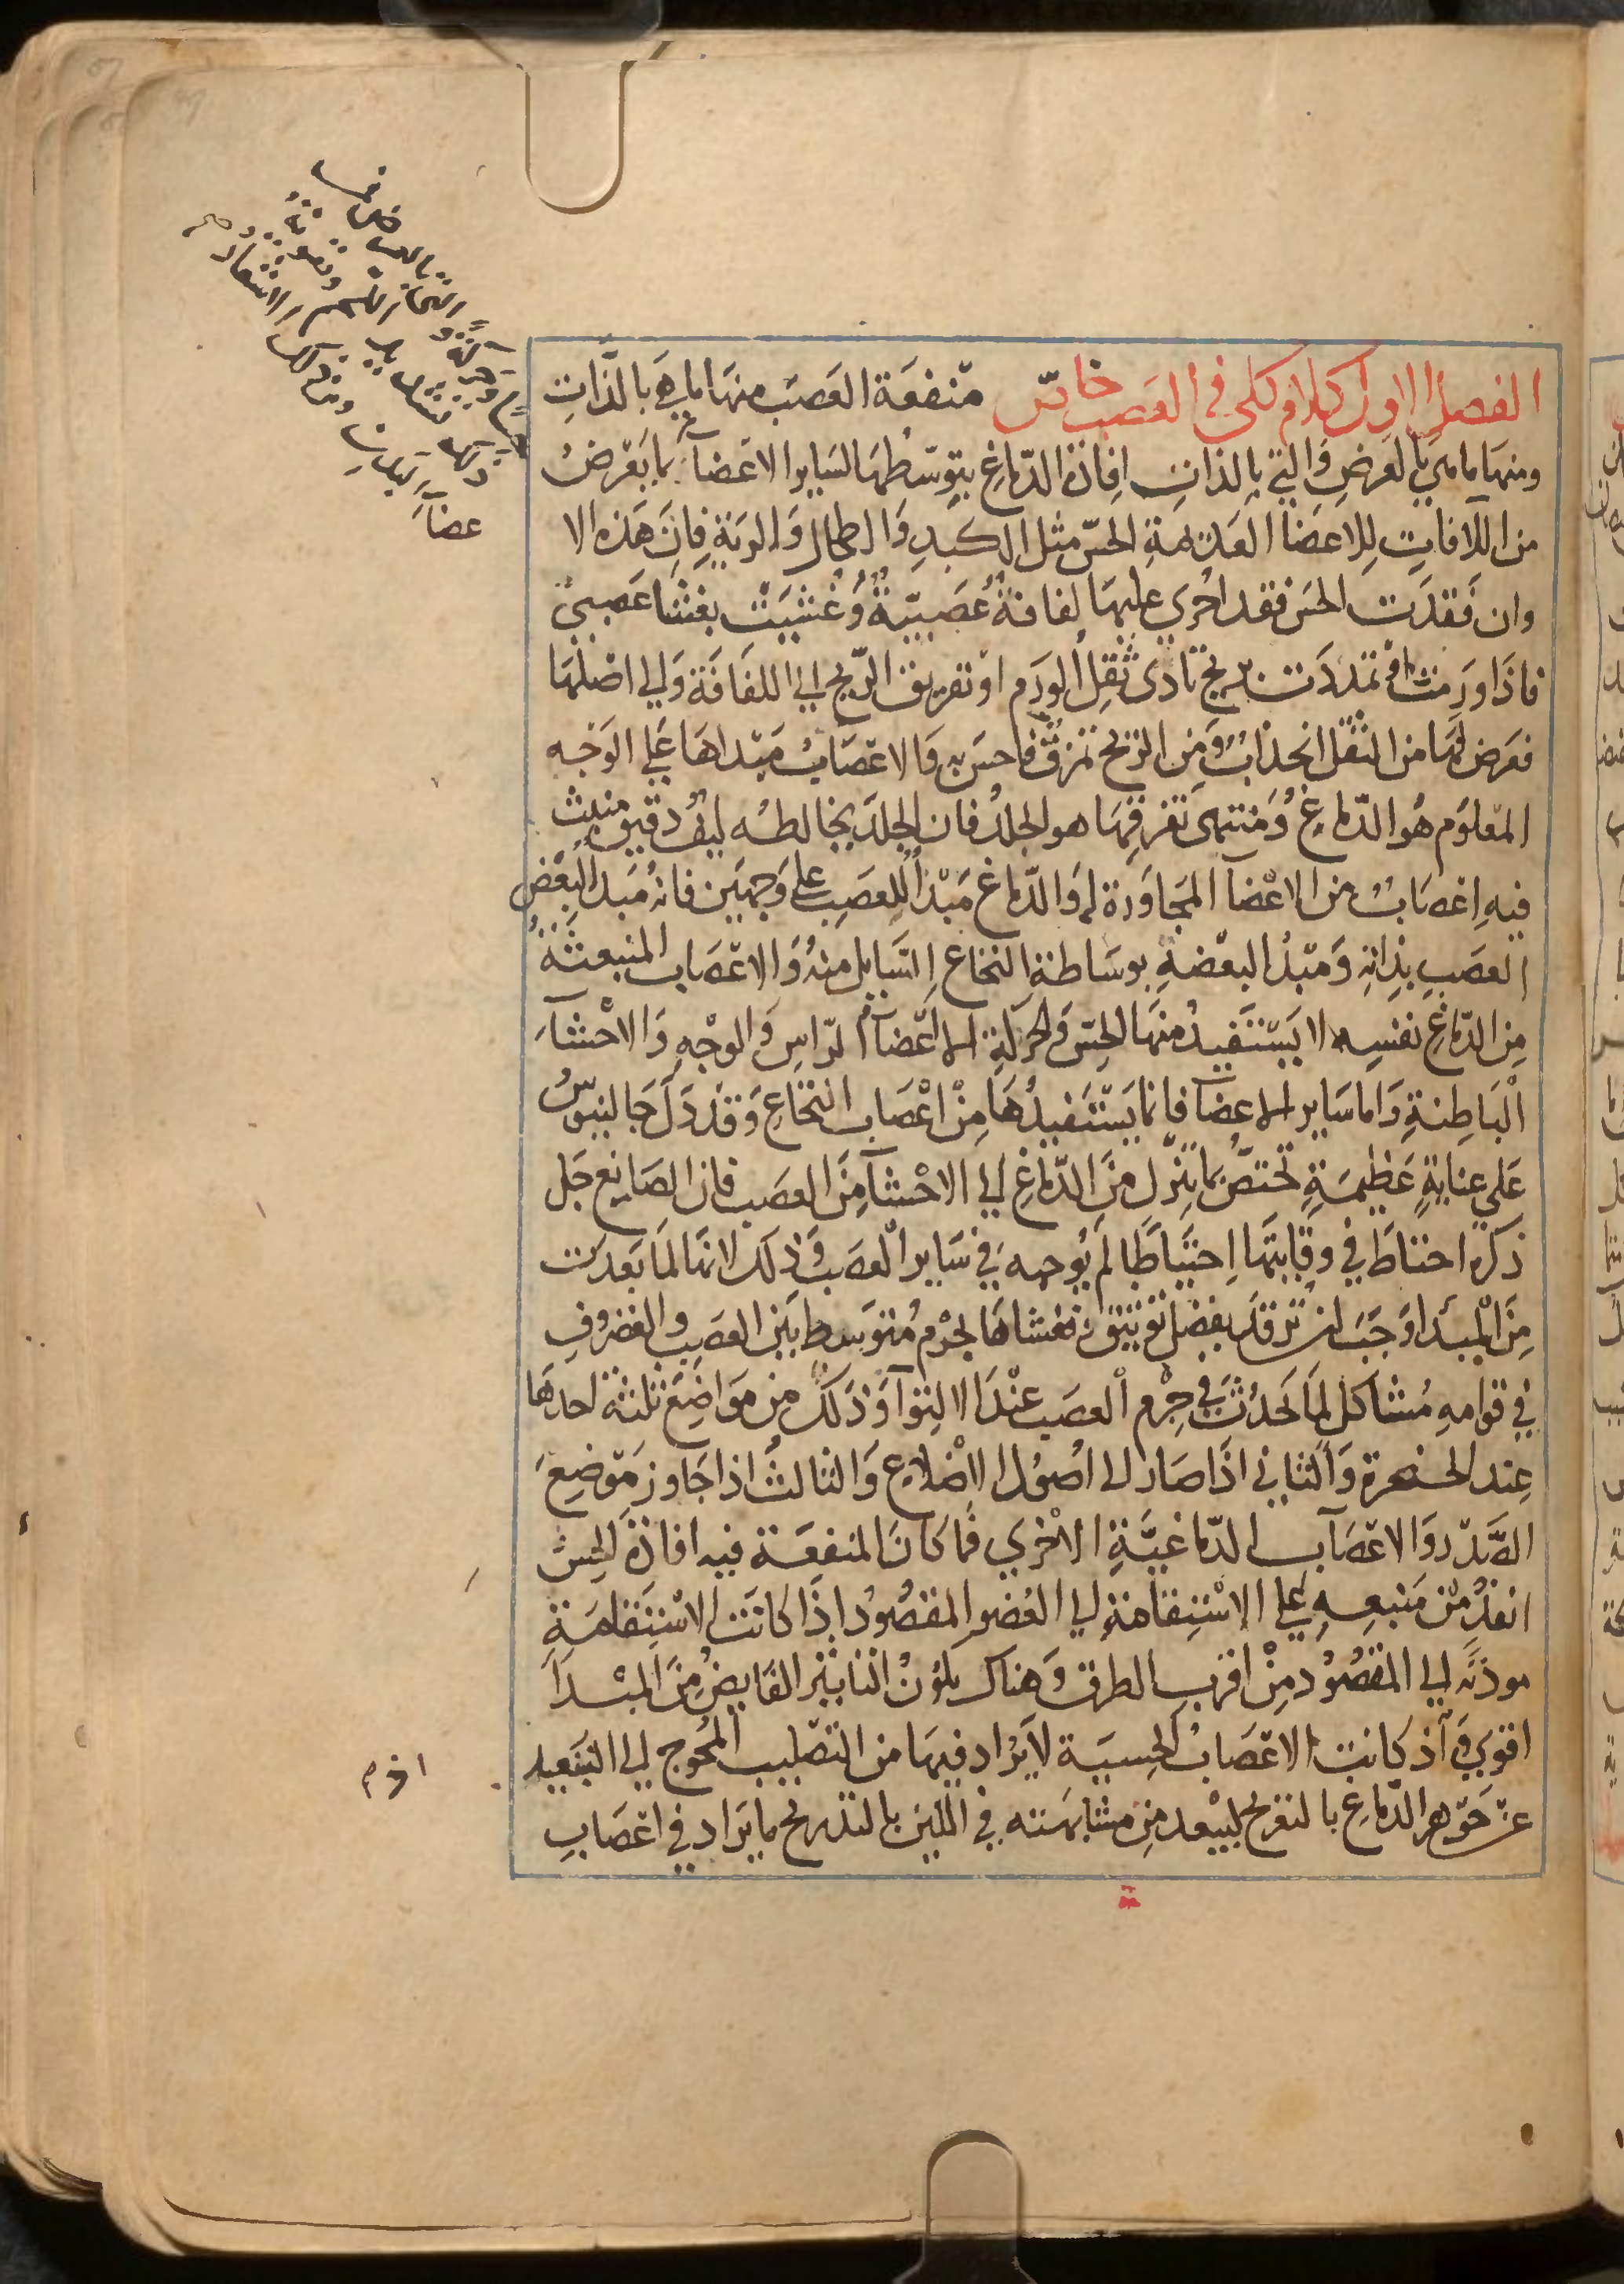 الفصل الاول كلام كلى فى العصب خاص منفعة العصب منها ما هى بالذات
ومنها ما هي بالعرض والتي بالذات افادة الدماغ بتوسطها لساير الاعضآء
بما يعرض
من الافات للاعضا العديمة الحس مثل الكبد والطحال والرية فان هذه الا
عضآء
وان فقدت الحس فقد اجرى عليها لفافة عصبية وغشيت بغشا عصبى
فاذا ورمت او تمددت بريح تادى ثقل الورم او تفريق الريح الى اللفافة والى اصلها
فعرض لها من الثقل انجذاب ومن الريح تمزق فاحس به والاعصاب مبداها على الوجه
المعلوم هو الدماغ ومنتهى تفرقها هو الجلد فان الجلد يخالطه ليف دقيق منبث
فيه اعصاب من الاعضآ المجاورة له والدماغ مبدأ للعصب على وجهين فانه مبدا لبعض
العصب بذاته ومبدأ لبعضه بوساطة النخاع السايل منه والاعصاب المنبعثة
من الدماغ نفسه لا يستفيد منها الحس والحركة الا اعضآء الراس والوجه والاحشآء
الباطنة واما ساير الاعضآ فانما يستفيدها من اعصاب النخاع وقد دل جالينوس
على عناية عظيمة تختص بما ينزل من الدماغ الى الاحشآ من العصب فان الصانع جل
ذكره احتاط في وقايتها احتياطا لم يوجبه في ساير العصب وذلك لانها لما بعدت
من المبدا وجب ان ترفد بفضل توثيق فغشاها بجرم متوسط بين العصب والغضروف
في قوامه مشاكل لما يحدث في جرم العصب عند الالتوآ وذلك من مواضع ثلثة احدها
عند الحنجرة والثاني اذا صار الى اصول الاضلاع والثالث اذا جاوز موضع
الصدر والاعصاب الدماغية الاخرى فما كان المنفعة فيه افادة الحس
انفذ من منبعه على الاستقامة الى العضو المقصود اذا كانت الاستقامة
موذنه الى المقصود من اقرب الطرق وهناك يكون التاثير الفايض من المبدا
اقوى و اذ كانت الاعصاب الحسية لا يراد فيها من التصليب المحوج الى التبعيد
عن جوهر الدماغ بالتفريج ليبعد من مشابهته في اللين بالتدريج ما يراد في اعصاب